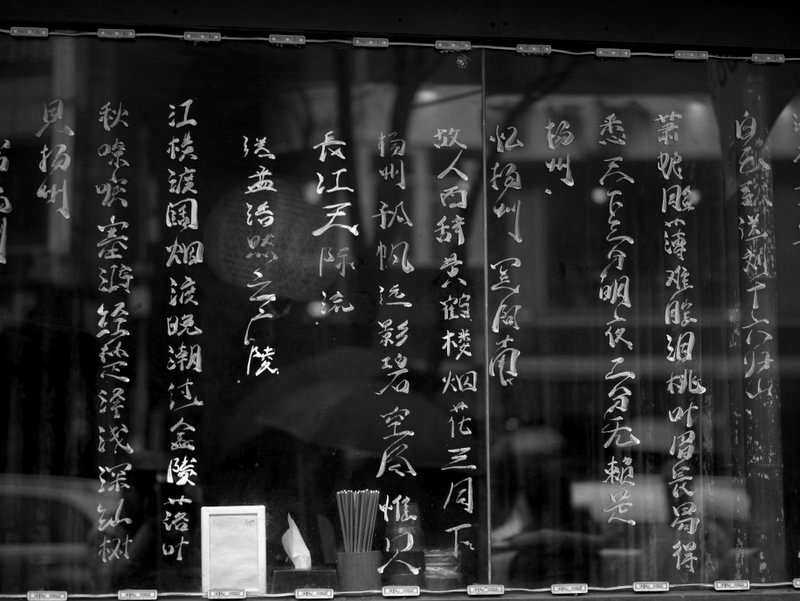 萧娘脸薄难胜泪桃叶眉长易得
愁天下三分明夜二分无赖是
扬州
忆扬州
故人西辞黄鹤楼烟花三月下
扬州孤帆远影碧空尽惟见
长江天际流
送孟浩然之广陵
江横渡阔烟波晚潮过金陵落叶
秋嘹唳塞鸿经楚泽浅深红树
见扬州